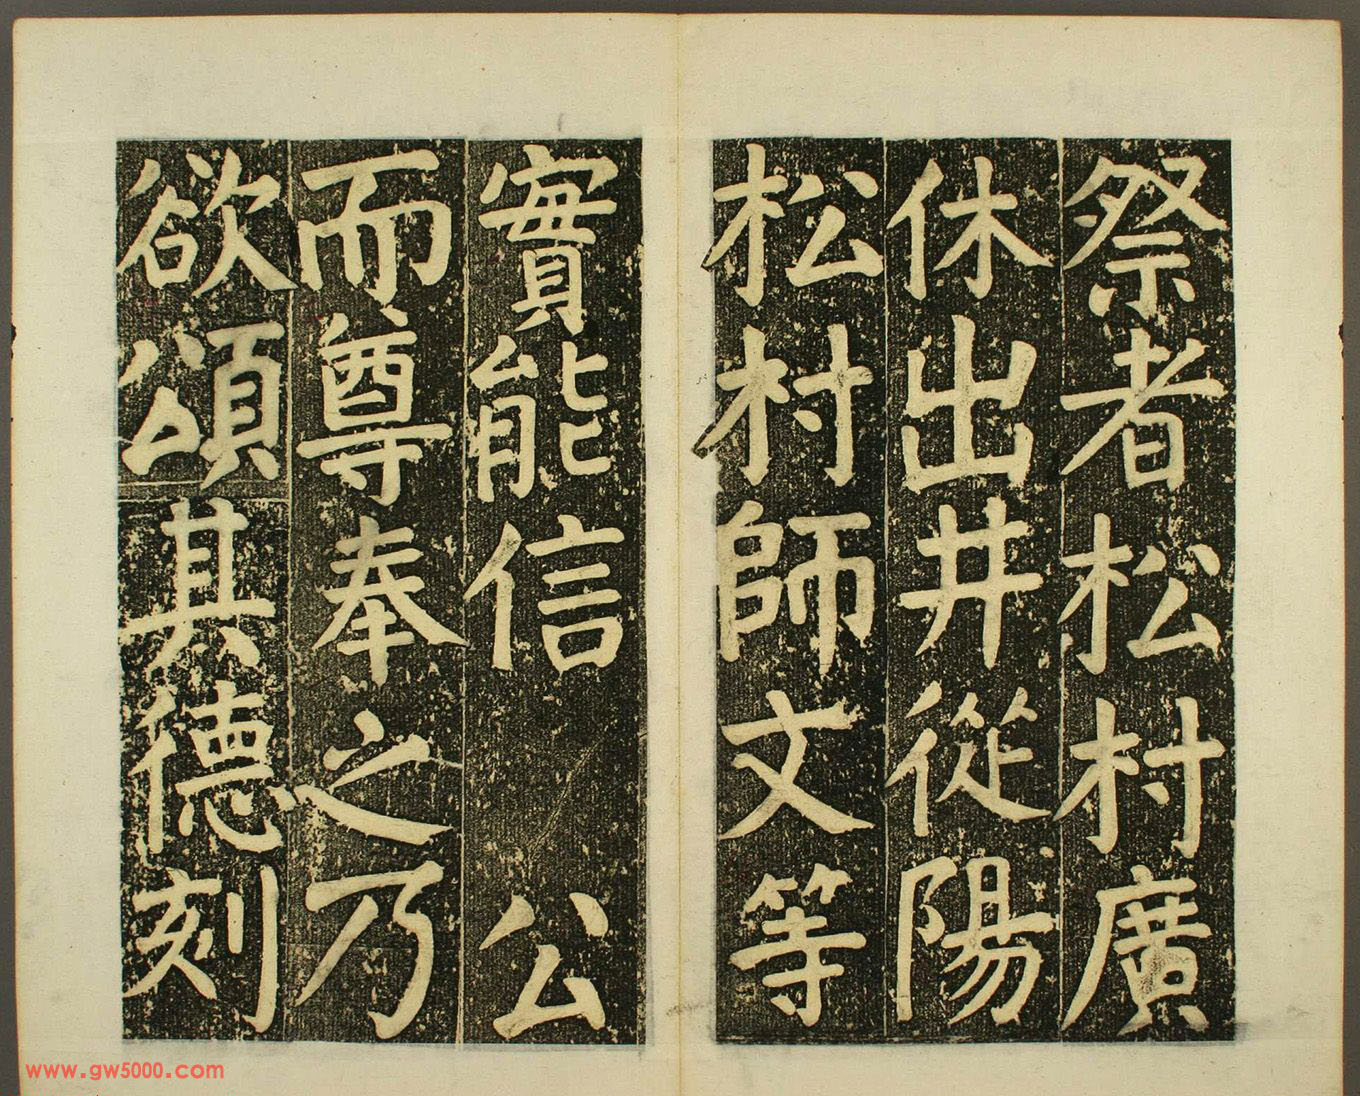 祭者松村廣
休出井從陽
松村師文等
實能信　公
而尊奉之乃
欲頌其德刻
www.gw5000.com